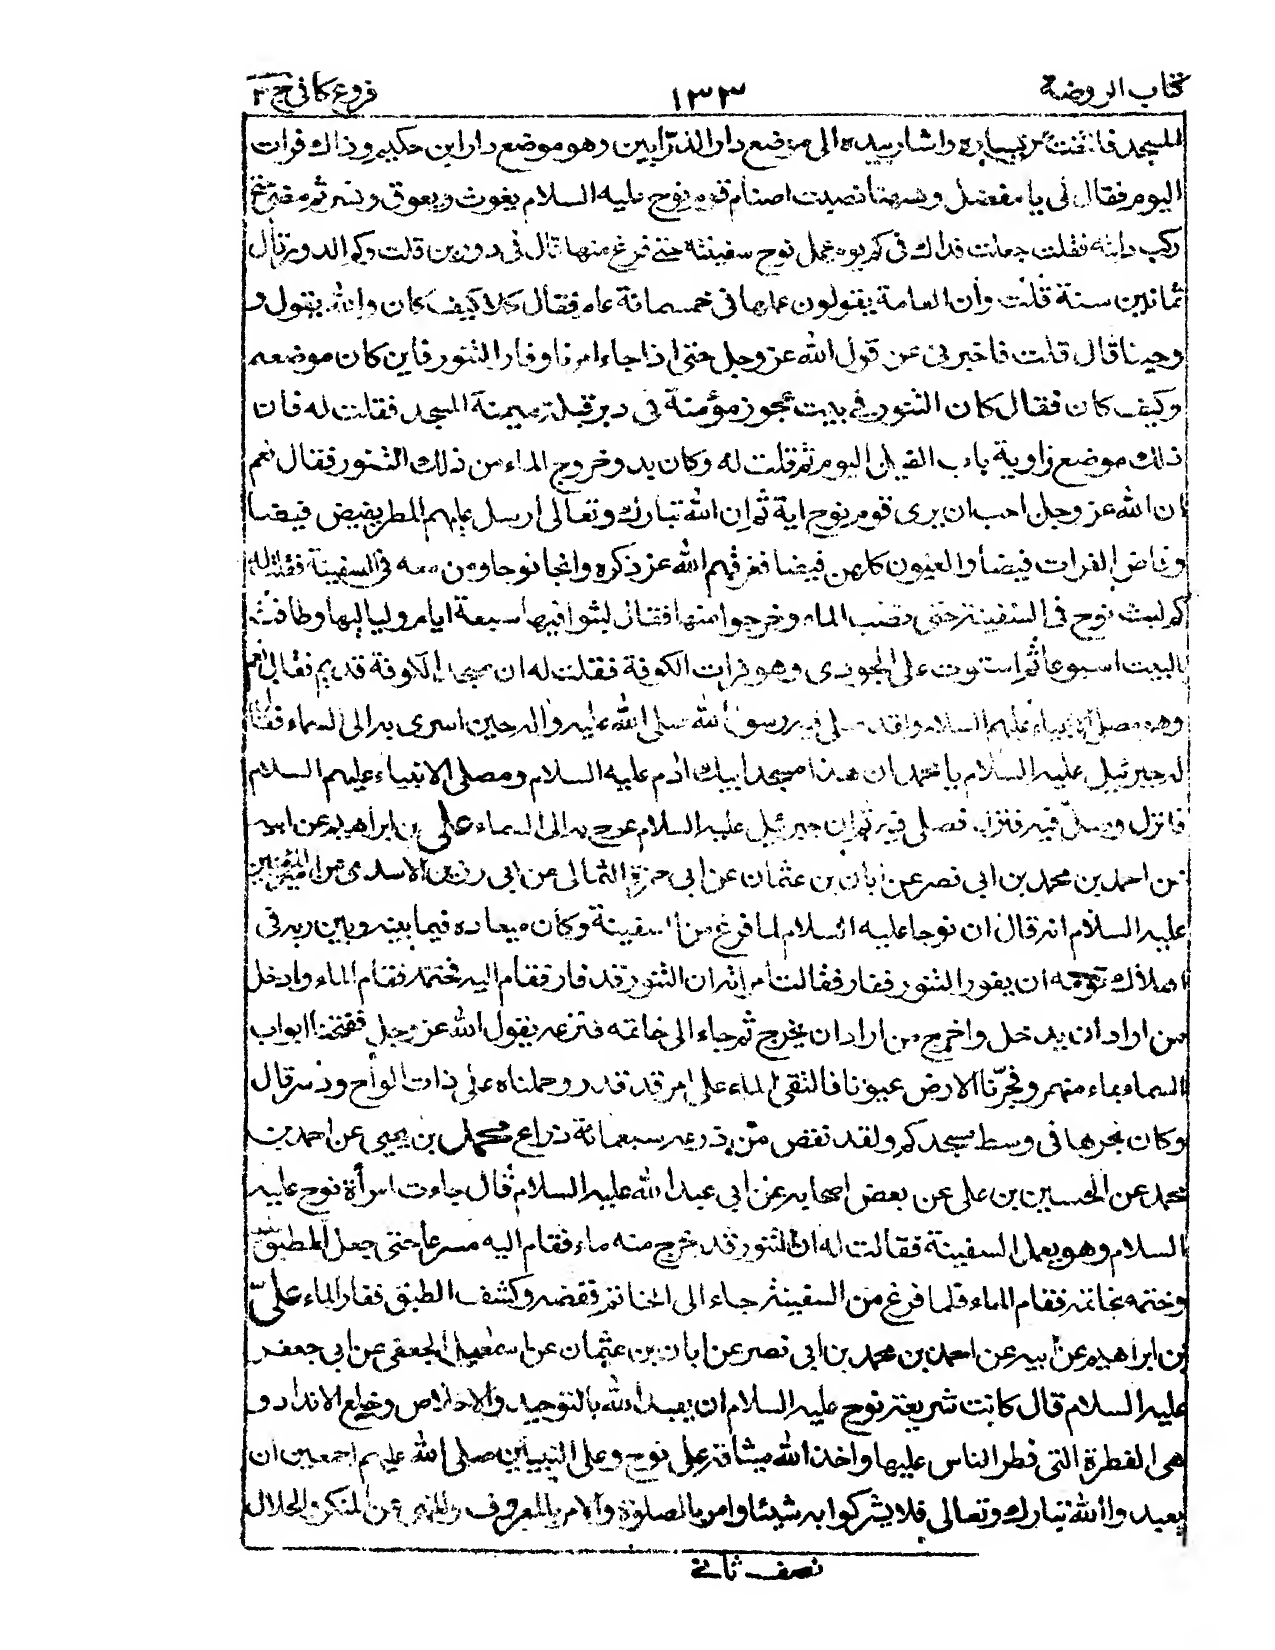 كتاب الروضة ١٣٣ فروع كافي ج ٣
المسجد فالتفت عن يساره واشار بيده الى موضع دار الداريين وهو موضع دار ابن حكيم وذاك فرات
اليوم فقال لي يا مفضل وهيهنا نصبت اصنام قوم نوح عليه السلام يغوث ويعوق ونسر ثم مضى حتى
ركب دابته فقلت جعلت فداك في كم يوم عمل نوح سفينته حتى فرغ منها قال في دورين قلت وكم الدورين قال
ثمانين سنة قلت وأن العامة يقولون عملها في خمسمائة عام فقال كلا كيف كان والله يقول و
وحينا قال قلت فاخبرني عن قول الله عز وجل حتى اذا جاء امرنا وفار التنور فاين كان موضعه
وكيف كان فقال كان التنور في بيت عجوز مؤمنة في دبر قبلة ميمنة المسجد فقلت له فان
ذلك موضع زاوية باب الفيل اليوم ثم قلت له وكان بدو خروج الماء من ذلك التنور فقال نعم
ان الله عز وجل احب ان يرى قوم نوح اية ثم ان الله تبارك وتعالى ارسل عليهم المطر يفيض فيضا
وفاض الفرات فيضا والعيون كلهن فيضا فغرقهم الله عز ذكره وانجا نوحا ومن معه في السفينة فقلت له
كم لبث نوح في السفينة حتى نضب الماء وخرجوا منها فقال لبثوا فيها سبعة ايام ولياليها وطافت
بالبيت اسبوعا ثم استوت على الجودى وهو فرات الكوفة فقلت له ان مسجد الكوفة قديم فقال نعم
وهو مصلى الانبياء عليهم السلام ولقد صلى فيه رسول الله صلى الله عليه واله حين اسرى به الى السماء فقال
له جبرئيل عليه السلام يا محمد ان هذا مسجد ابيك ادم عليه السلام ومصلى الانبياء عليهم السلام
فانزل وصلّ فيه فنزل فصلى فيه ثم ان جبرئيل عليه السلام عرج به الى السماء على بن ابراهيم عن ابيه
عن احمد بن محمد بن ابى نصر عن ابان بن عثمان عن ابى حمزة الثمالى عن ابى رزين الاسدى عن امير المؤمنين
عليه السلام انه قال ان نوحا عليه السلام لما فرغ من السفينة وكان ميعاده فيما بينه وبين ربه في
اهلاك قومه ان يفور التنور ففار فقالت امرأته ان التنور قد فار فقام اليه فختمه فقام الماء وادخل
من اراد أن يدخل واخرج من اراد ان يخرج ثم جاء الى خاتمه فنزعه يقول الله عز وجل ففتحنا ابواب
السماء بماء منهمر وفجرّنا الارض عيونا فالتقى الماء على امر قد قدر وحملناه على ذات الواح ودسر قال
وكان نجرها في وسط مسجدكم ولقد نقص من ذرعه سبعمائة ذراع محمد بن يحيى عن احمد بن
محمد عن الحسين بن على عن بعض اصحابه عن ابى عبد الله عليه السلام قال جاءت امرأة نوح عليه
السلام وهو يعمل السفينة فقالت له ان التنور قد خرج منه ماء فقام اليه مسرعا حتى جعل الطبق عليه
وختمه بخاتمه فقام الماء فلما فرغ من السفينة جاء الى الخاتم ففضه وكشف الطبق ففار الماء علىّ
بن ابراهيم عن ابيه عن احمد بن محمد بن ابى نصر عن ابان بن عثمان عن اسمعيل الجعفى عن ابى جعفر
عليه السلام قال كانت شريعة نوح عليه السلام ان يعبد الله بالتوحيد والاخلاص وخلع الانداد و
هى الفطرة التى فطر الناس عليها واخذ الله ميثاقه على نوح وعلى النبيين صلى الله عليهم اجمعين ان
يعبدوا الله تبارك وتعالى فلا يشركوا به شيئا وامر بالصلوة والامر بالمعروف والنهى عن المنكر والحلال
نصف ثانى